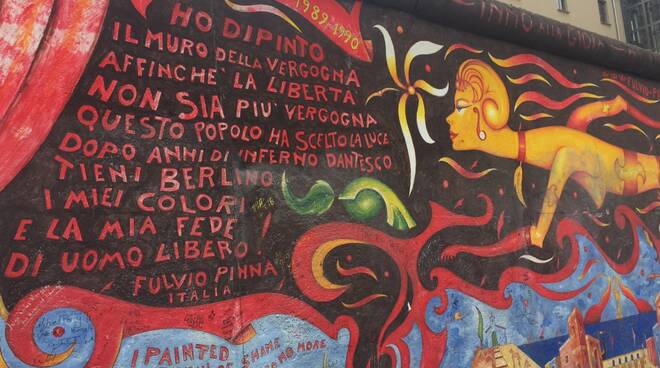 1989-1990
HO DIPINTO
IL MURO DELLA VERGOGNA
AFFINCHÈ LA LIBERTÀ
NON SIA PIU' VERGOGNA
QUESTO POPOLO HA SCELTO LA LUCE
DOPO ANNI DI INFERNO DANTESCO
TIENI BERLINO
I MIEI COLORI
E LA MIA FEDE
DI UOMO LIBERO!
FULVIO PINNA
ITALIA
INNO ALLA GIOIA
I PAINTED
OF SHAME
NO MORE